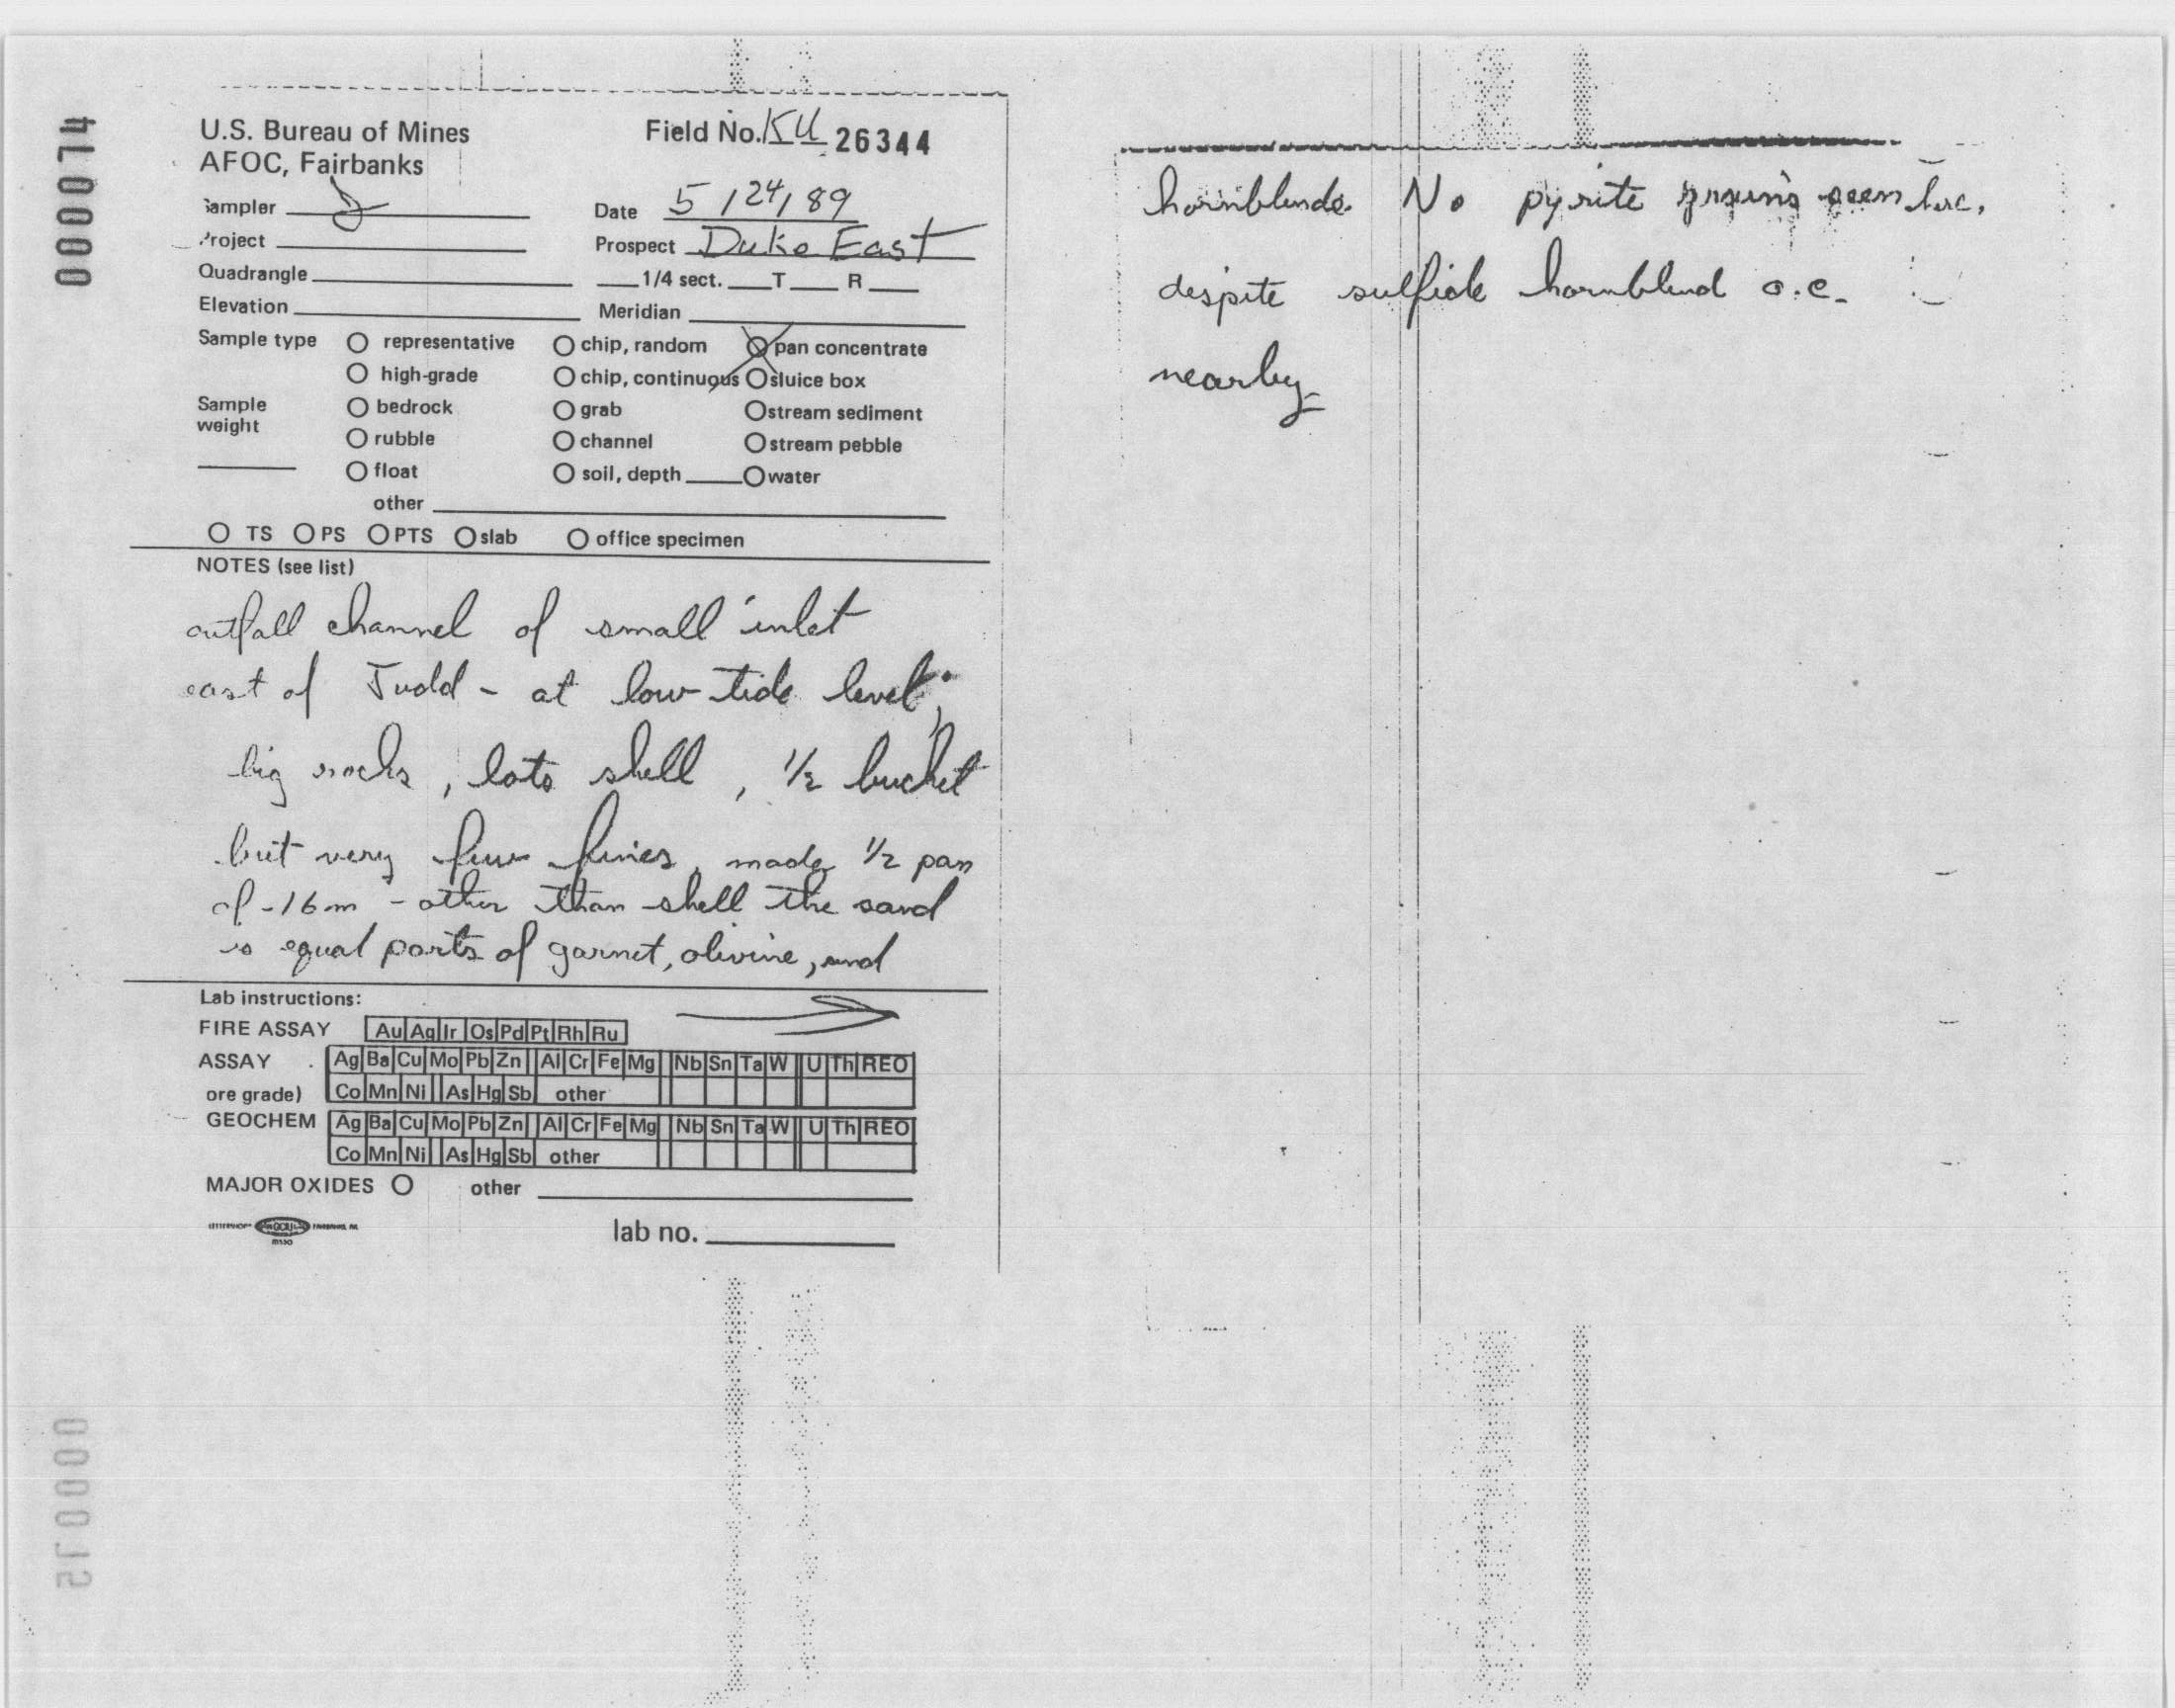 U.S. Bureau of Mines
AFOC, Fairbanks
Field No. KU 26344
Sampler
Date 5/24/89
Project
Prospect Duke East
Quadrangle
1/4 sect. T R
Elevation
Meridian
Sample type
O representative O chip, random O pan concentrate
O high-grade O chip, continuous O sluice box
Sample weight
O bedrock O grab O stream sediment
O rubble O channel O stream pebble
O float O soil, depth O water
other
O TS O PS O PTS O slab O office specimen
NOTES (see list)
outfall channel of small inlet
east of Judd - at low-tide level;
big rocks, lots shell, 1/2 bucket
but very few fines, made 1/2 pan
of -16m - other than shell the sand
is equal parts of garnet, olivine, and
Lab instructions:
FIRE ASSAY Au Ag Ir Os Pd Pt Rh Ru
ASSAY Ag Ba Cu Mo Pb Zn Al Cr Fe Mg Nb Sn Ta W U Th REO
ore grade) Co Mn Ni As Hg Sb other
GEOCHEM Ag Ba Cu Mo Pb Zn Al Cr Fe Mg Nb Sn Ta W U Th REO
Co Mn Ni As Hg Sb other
MAJOR OXIDES O other
lab no.
hornblende. No pyrite grains seen here,
despite sulfide hornblend o.c.
nearby